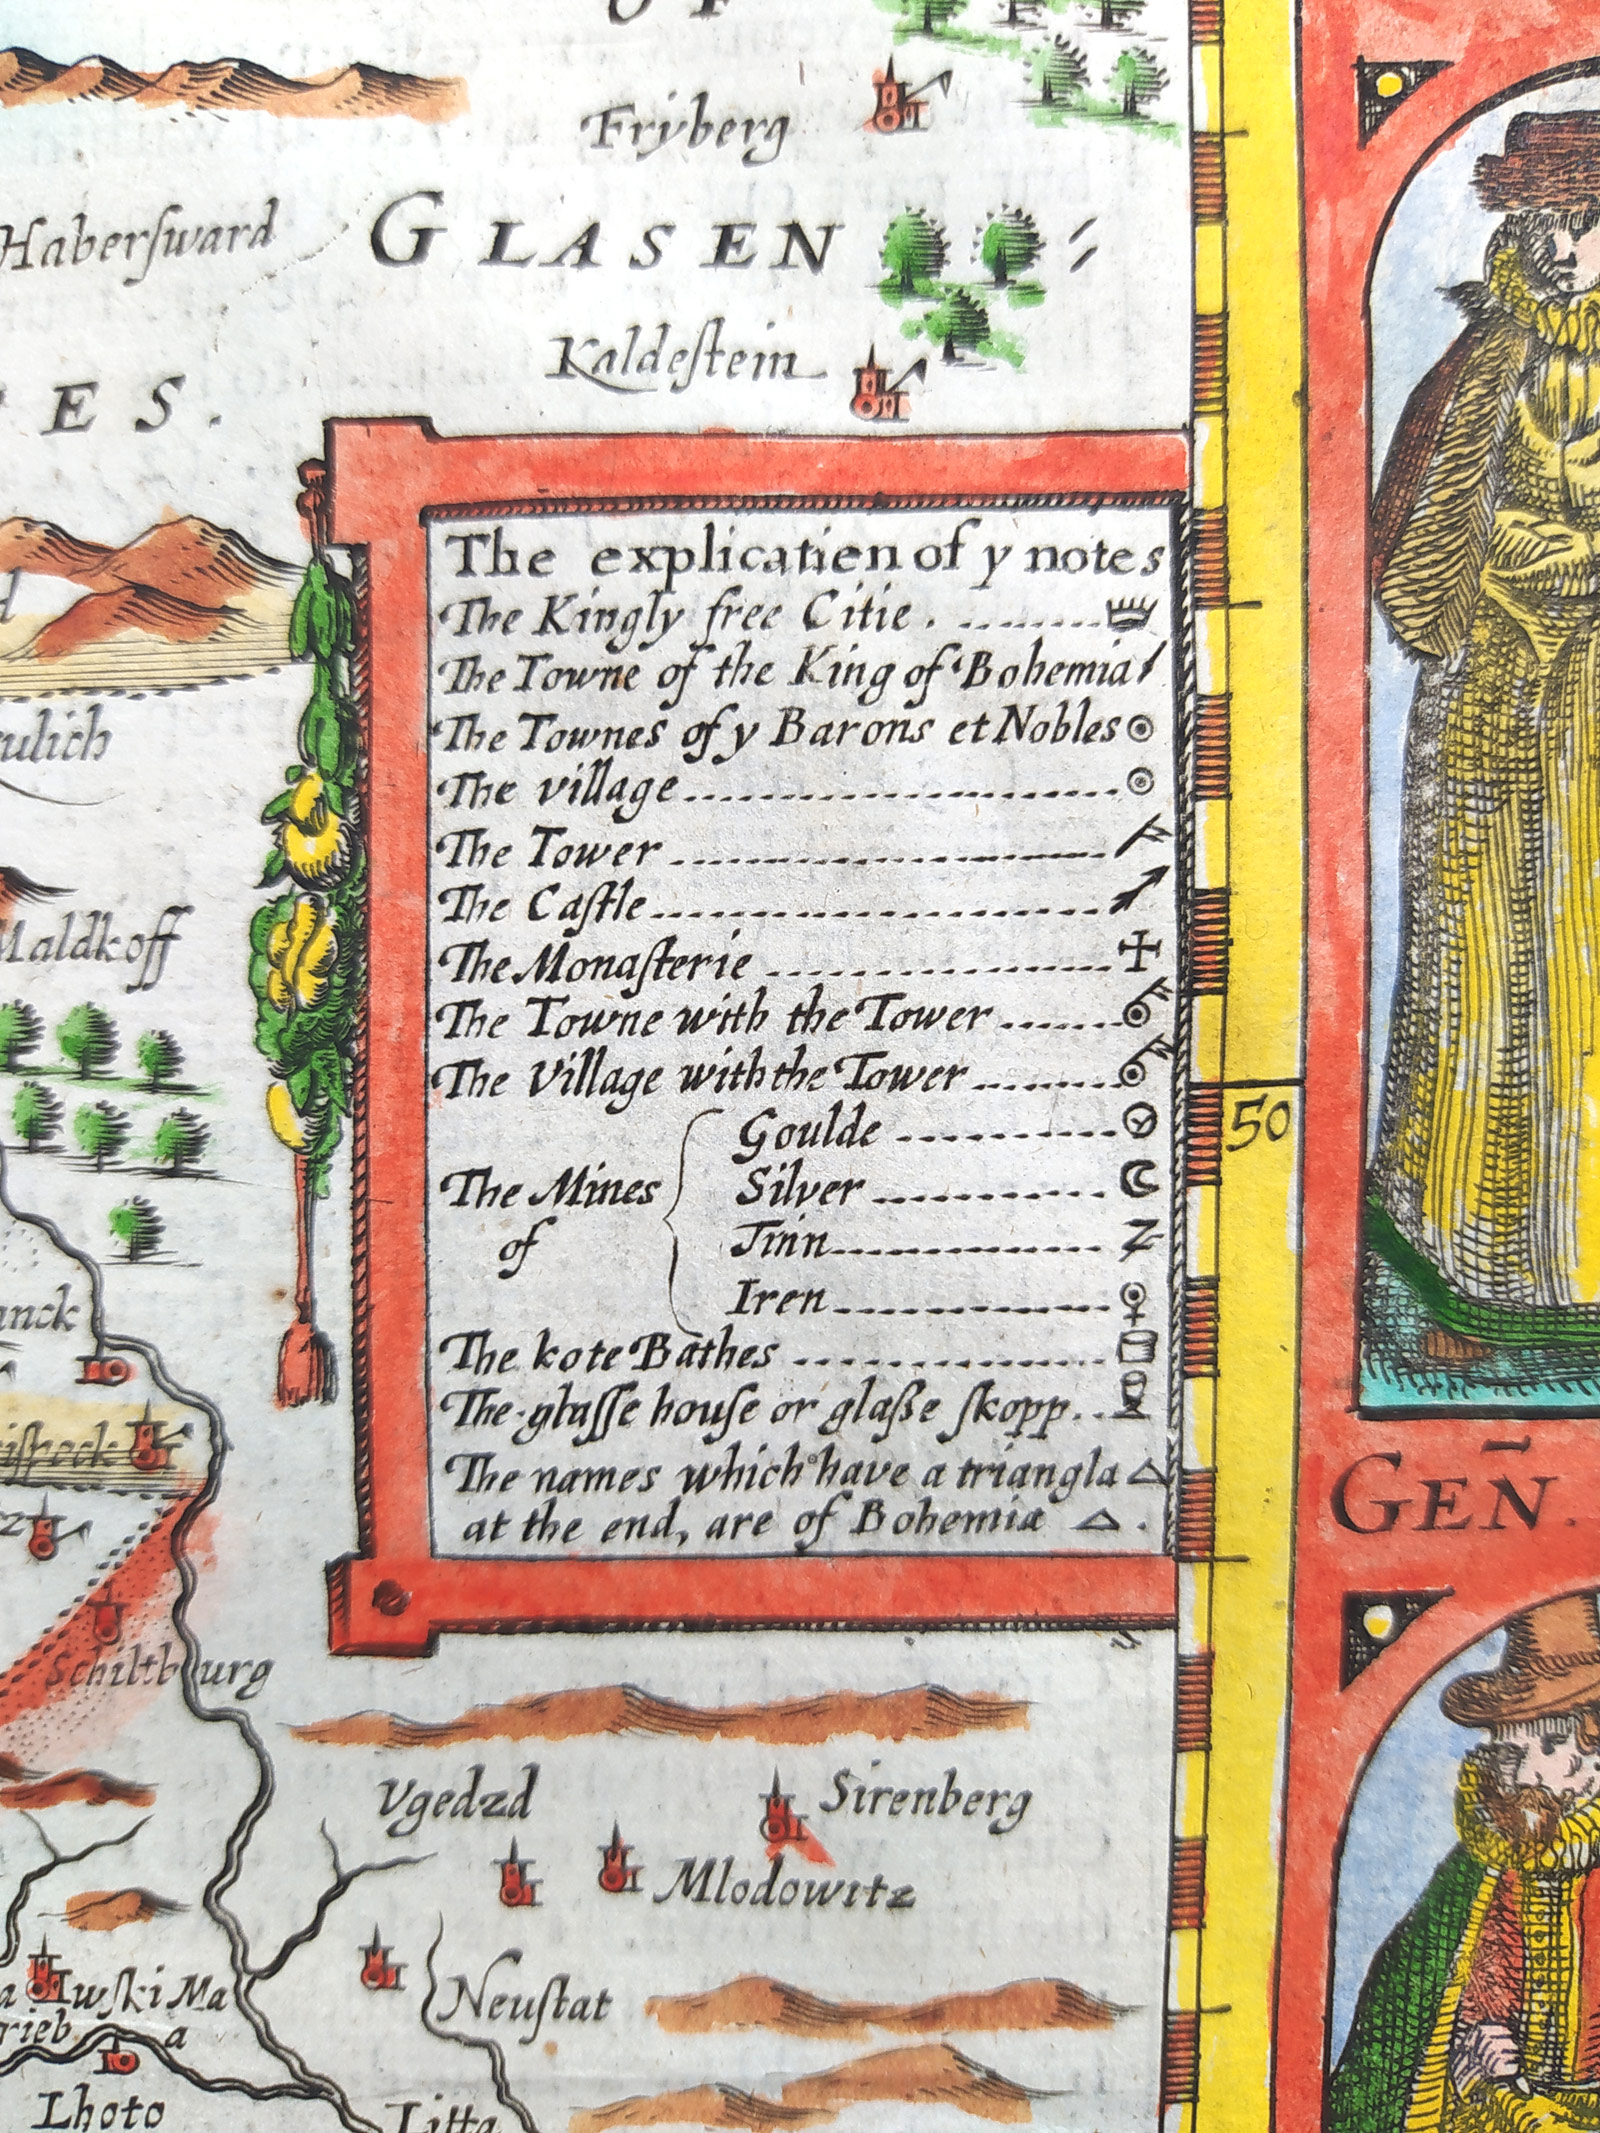 Fryberg
Habersward
GLASEN
Kaldestein
ES.
The explicatien of y notes
The Kingly free Citie.
The Towne of the King of Bohemia
The Townes of y Barons et Nobles
The village
The Tower
The Castle
The Monasterie
The Towne with the Tower
The Village with the Tower
The Mines
of
Goulde
Silver
Tinn
Iren
The kote Bathes
The glasse house or glaße skopp.
The names which have a triangla
at the end, are of Bohemia
50
ulich
Maldkoff
anck
GEÑ.
Schiltburg
Vgedzd
Sirenberg
Mlodowitz
Neustat
wski Ma
rieb
a
Lhoto
Litta